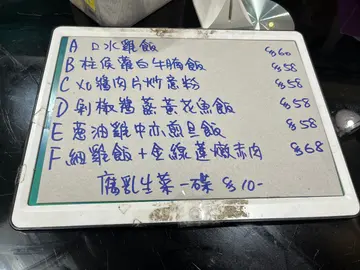 A 口水雞飯 $60
B 柱侯蘿白牛腩飯 $58
C XO豬肉片炒意粉 $58
D 剁椒薑黃花魚飯 $58
E 蔥油雞中亦煎旦飯 $58
F 細雞飯+金線蓮燉赤肉 $68
腐乳生菜一碟 $10-